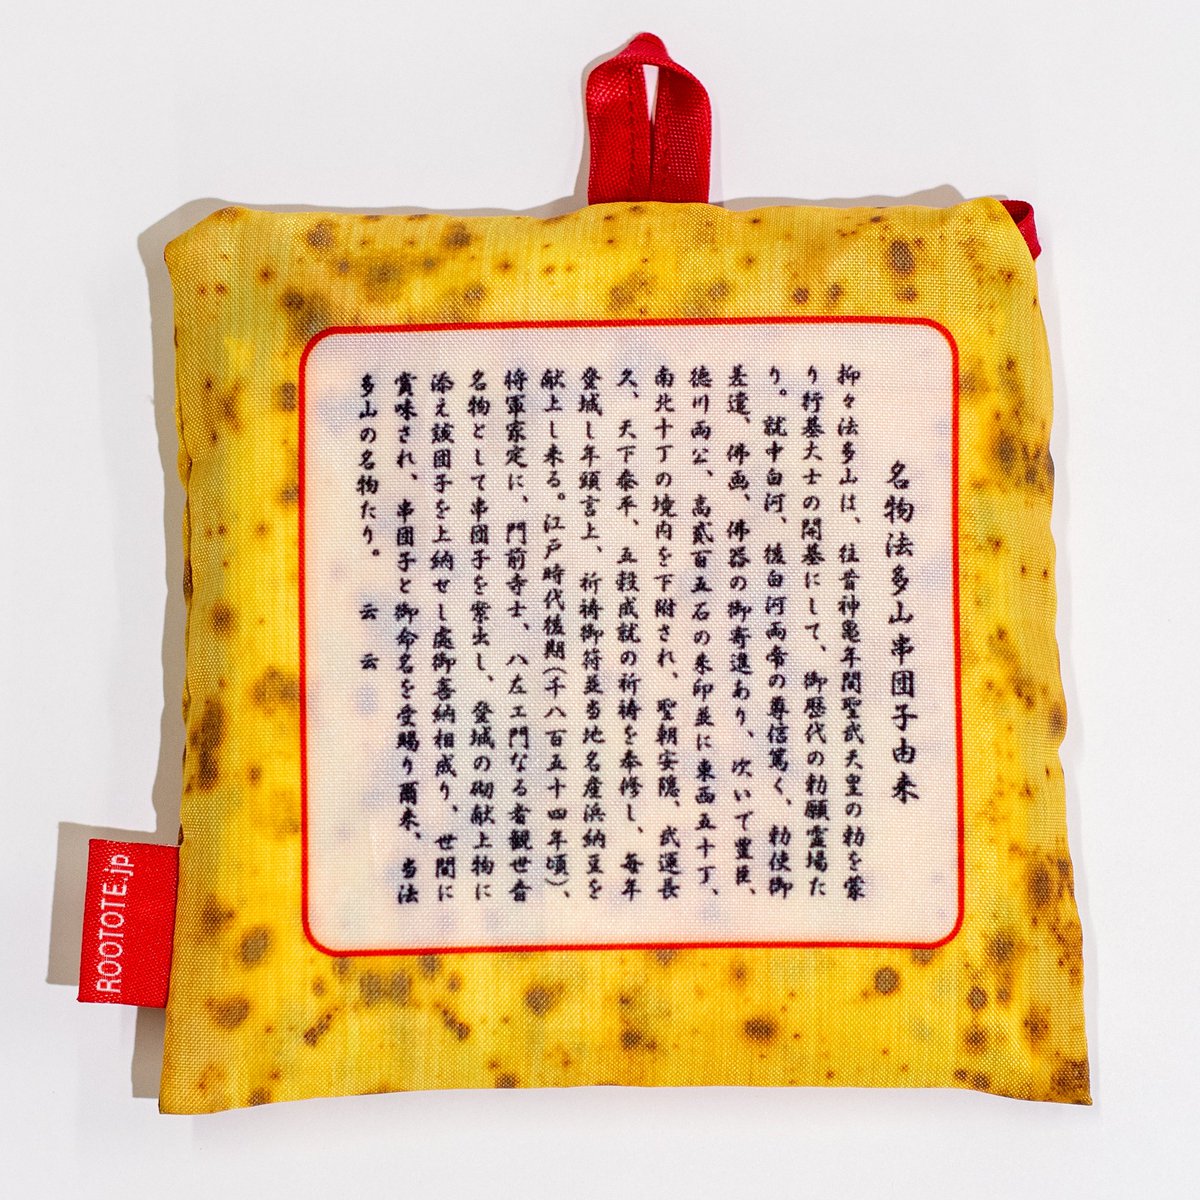 名物法多山串団子由来
抑々法多山は、往昔神亀年間聖武天皇の勅を蒙
り行基大士の開基にして、御歴代の勅願霊場た
り。就中白河、後白河両帝の尊信篤く、勅使御
差遣、佛画、佛器の御寄進あり、次いで豊臣、
徳川両公、高貮百五石の朱印並に東西五十丁、
南北十丁の境内を下附され、聖朝安隠、武運長
久、天下泰平、五穀成就の祈祷を奉修し、毎年
登城し年頭言上、祈祷御符並当地名産浜納豆を
献上し来る。江戸時代後期(千八百五十四年頃)、
将軍家定に、門前寺士、八左エ門なる者観世音
名物として串団子を案出し、登城の砌献上物に
添え該団子を上納せし處御喜納相成り、世間に
賞味され、串団子と御命名を受賜り爾来、当法
多山の名物たり。 云 云
ROOTOTE.jp